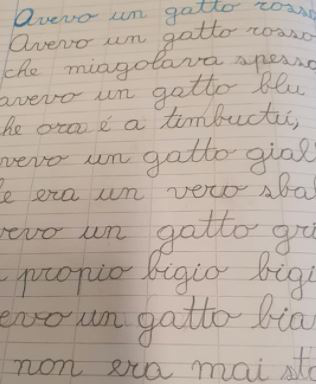 Avevo un gatto rosso
Avevo un gatto rosso
che miagolava spesso
avevo un gatto blu
he ora è a timbuctù,
vevo un gatto gial
e era un vero sba
evo un gatto gri
propio bigio bigi
evo un gatto bia
non era mai sta